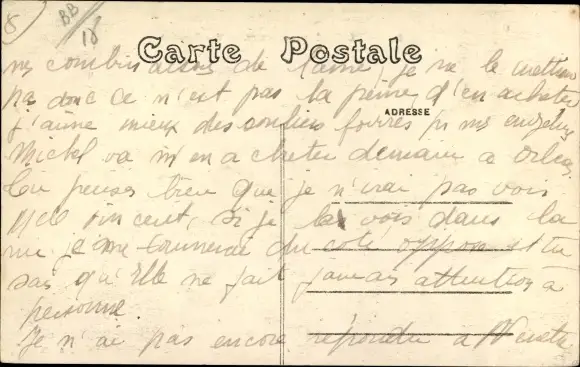 8
BB
18
Carte Postale
ADRESSE
mes combinaisons de laine je ne le mettrai
pas donc ce n'est pas la peine d'en acheter
j'aime mieux des souliers fourrés pr mes engelures
Michel va m'en acheter demain a Orléans
Tu penses bien que je n'irai pas voir
Mell Vincent, si je la vois dans la
rue je me tournerai du coté opposé et tu
sais qu'Elle ne fait jamais attention à
personne.
Je n'ai pas encore répondu a